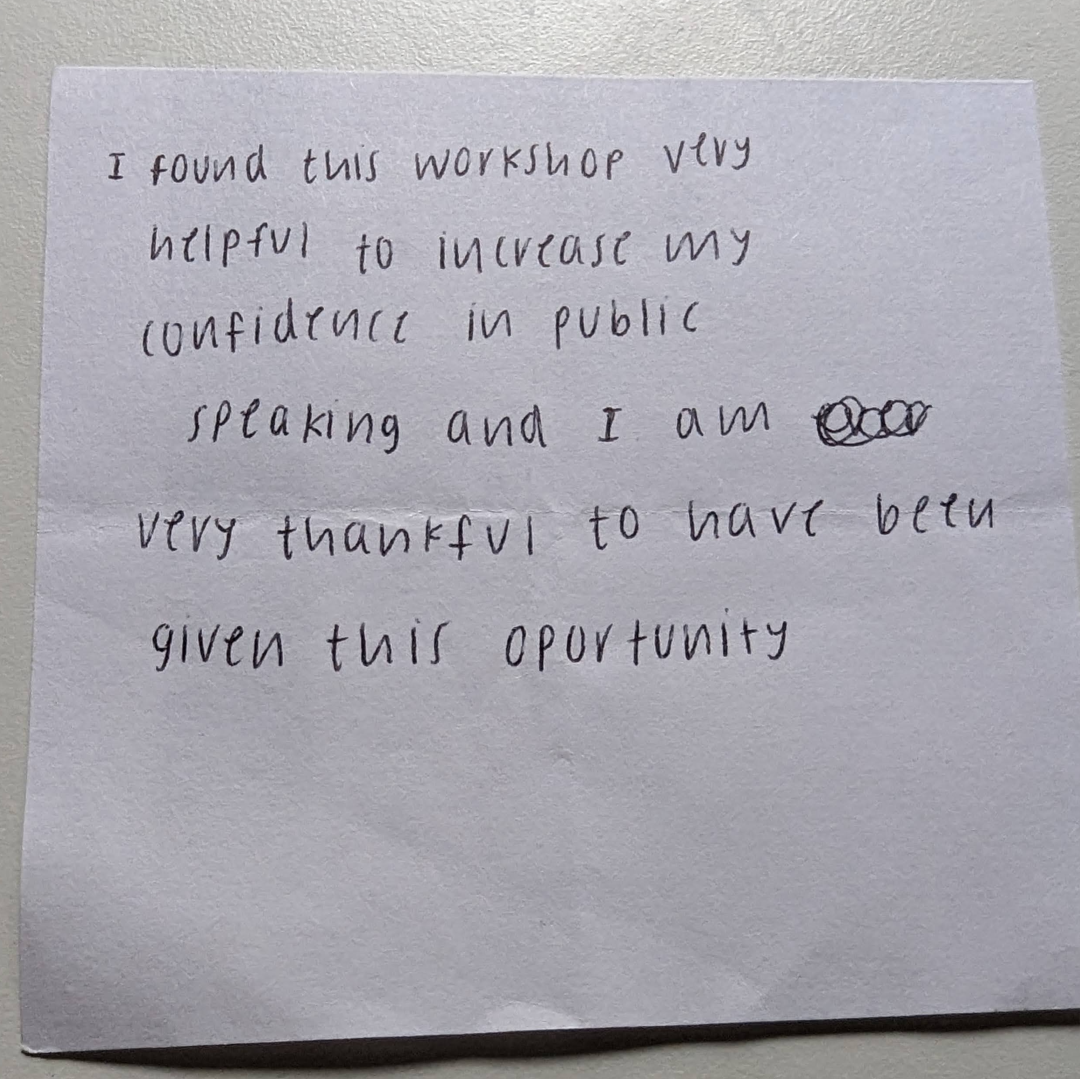 I found this workshop very
helpful to increase my
confidence in public
speaking and I am
very thankful to have been
given this oportunity